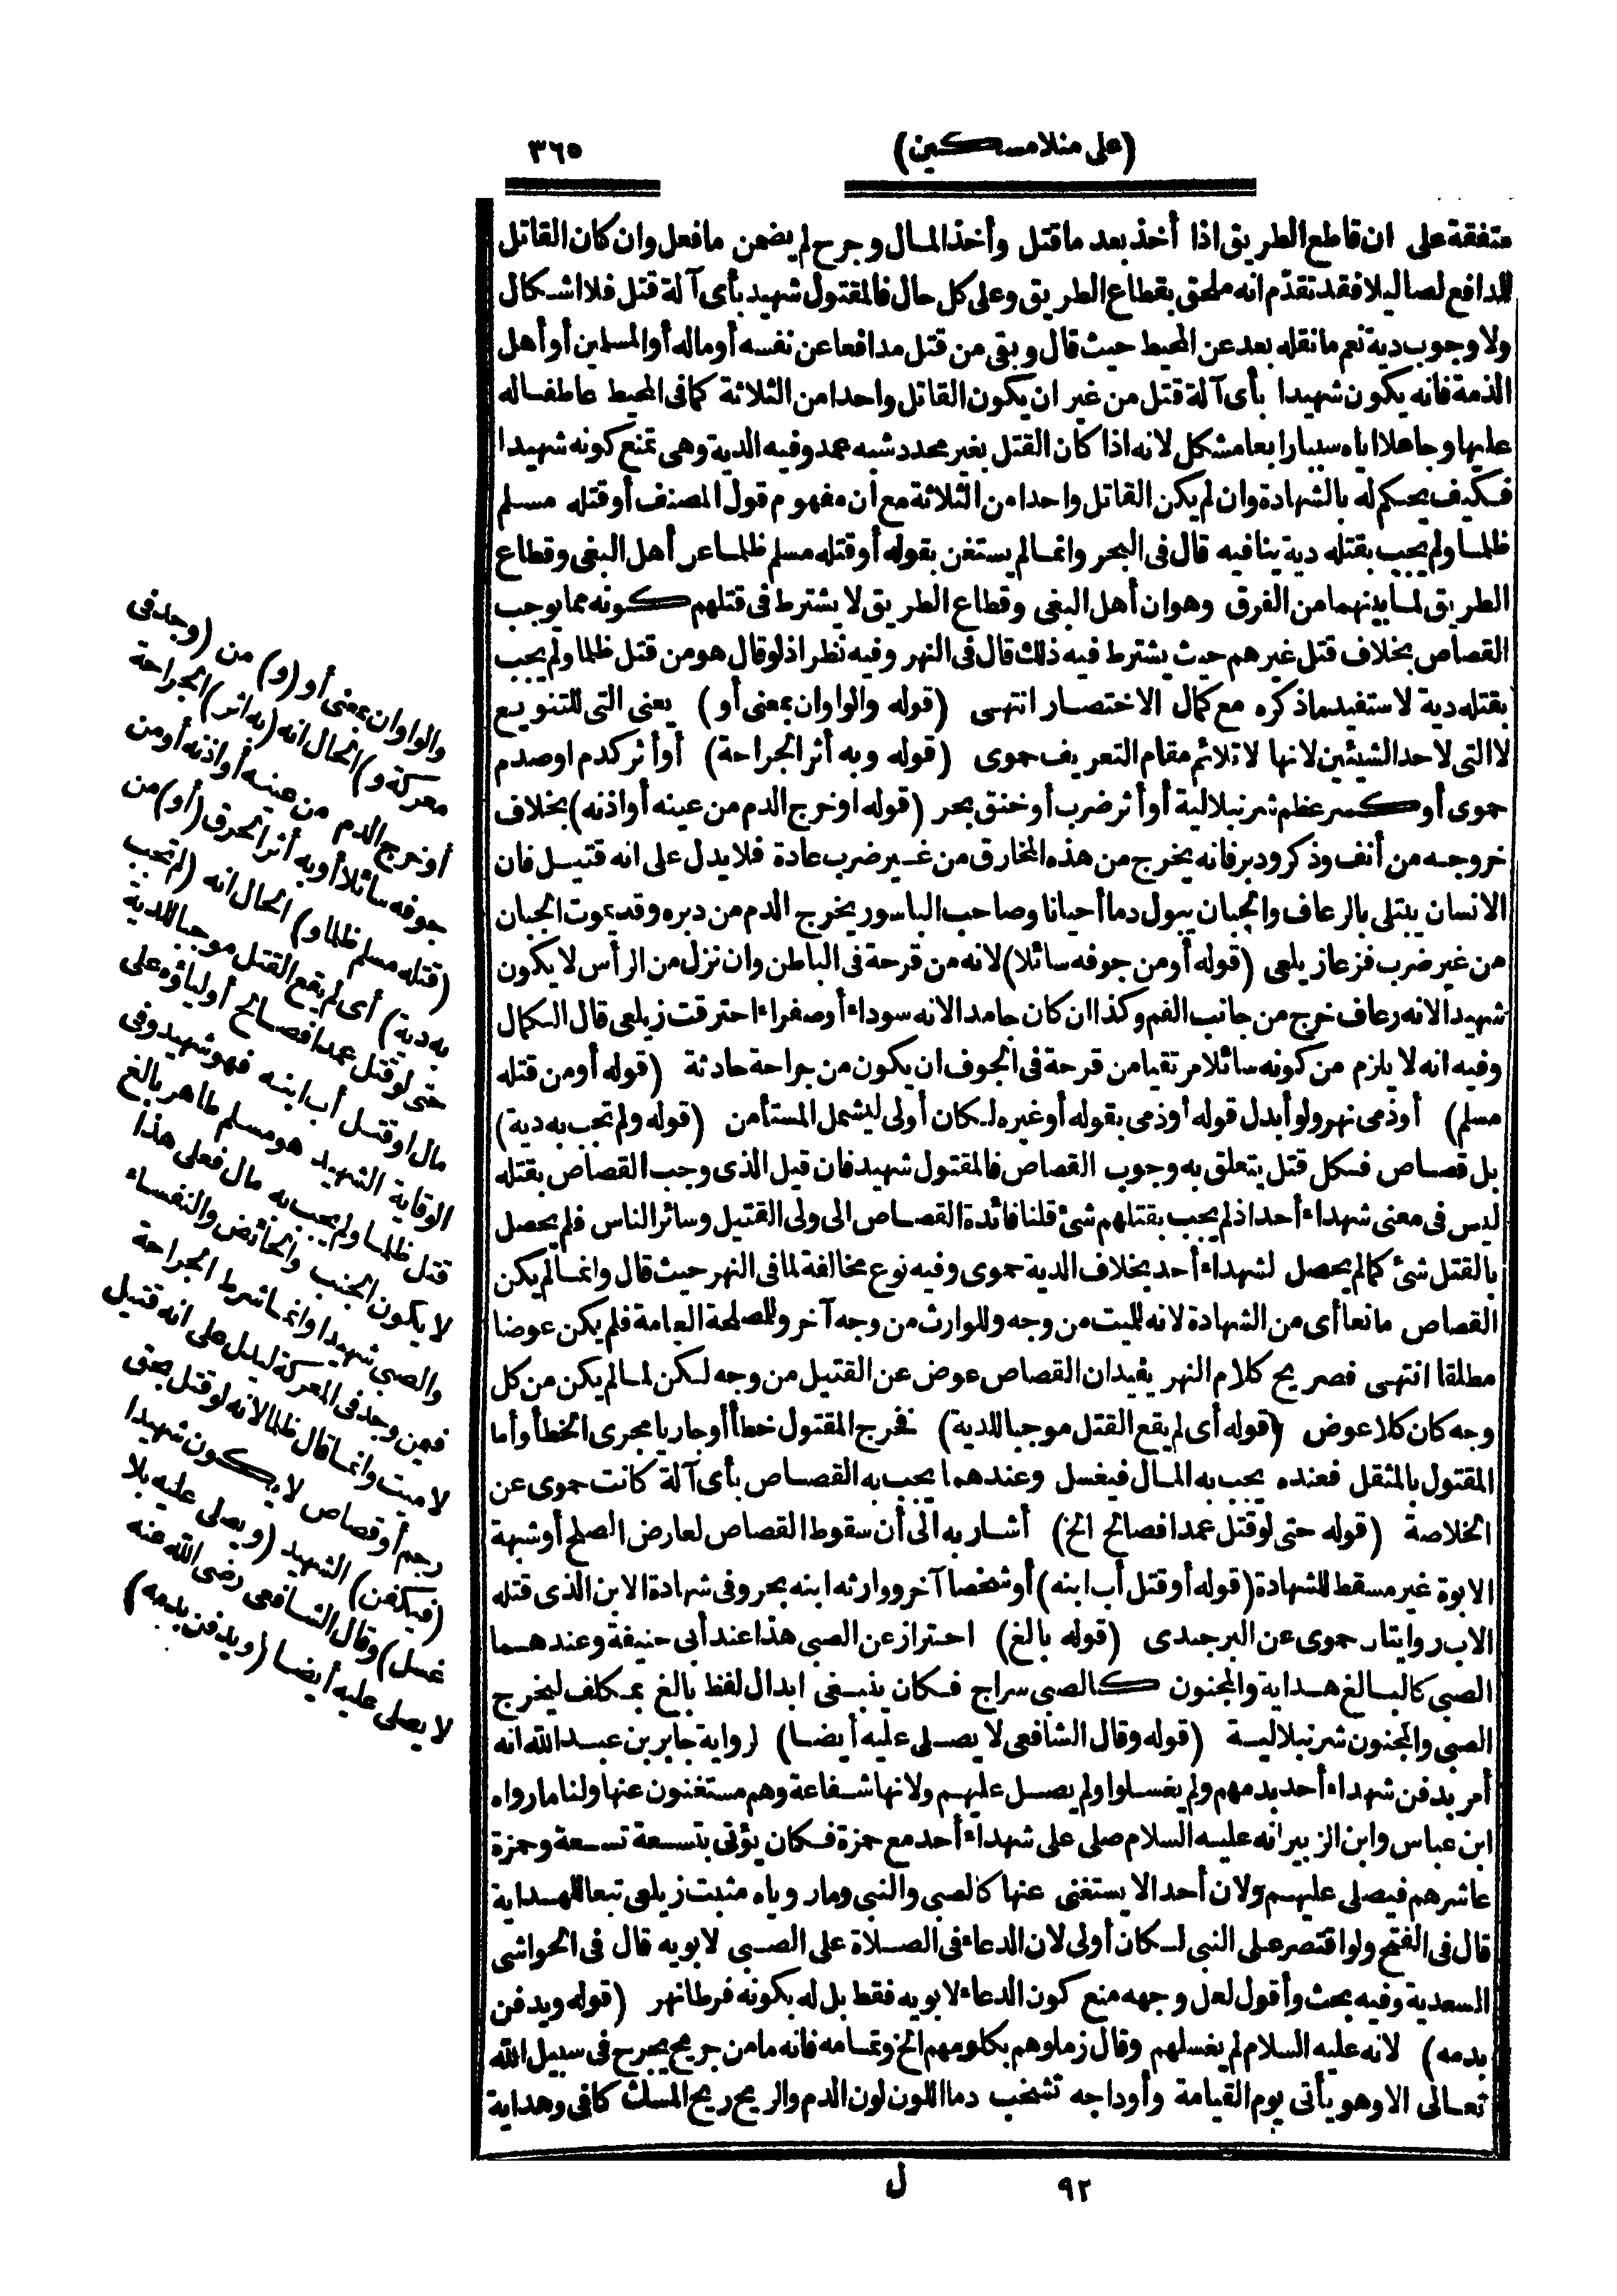 (على منلا مسكين)
٣٦٥
متفقة على ان قاطع الطريق اذا أخذ بعد ما قتل وأخذ المال وجرح لم يضمن ما فعل وان كان القاتل
للدافع لصا ليلا فقد تقدّم انه ملحق بقطاع الطريق وعلى كل حال فالمقتول شهيد بأى آلة قتل فلا اشكال
ولا وجوب دية نعم ما نقله بعد عن المحيط حيث قال وبقى من قتل مدافعا عن نفسه أو ماله أو المسلمين أو أهل
الذمة فانه يكون شهيدا بأى آلة قتل من غير ان يكون القاتل واحدا من الثلاثة كما فى المحيط عاطفا له
عليها وجاعلا اياه سببا رابعا مشكل لانه اذا كان القتل بغير محدد شبه عمد وفيه الدية وهى تمنع كونه شهيدا
فكيف يحكم له بالشهادة وان لم يكن القاتل واحدا من الثلاثة مع ان مفهوم قول المصنف أو قتله مسلم
ظلما ولم يجب بقتله دية ينافيه قال فى البحر وانما لم يستغن بقوله أو قتله مسلم ظلما عن أهل البغى وقطاع
الطريق لما بينهما من الفرق وهو ان أهل البغى وقطاع الطريق لا يشترط فى قتلهم كونه مما يوجب
القصاص بخلاف قتل غيرهم حيث يشترط فيه ذلك قال فى النهر وفيه نظر اذ لو قال هو من قتل ظلما ولم يجب
بقتله دية لاستفيد ما ذكره مع كمال الاختصار انتهى (قوله والواو ان بمعنى أو) يعنى التى للتنويع
لا التى لاحد الشيئين لانها لا تلائم مقام التعريف حموى (قوله وبه أثر الجراحة) أو أثر كدم او صدم
حموى أو كسر عظم شرنبلالية أو أثر ضرب أو خنق بحر (قوله او خرج الدم من عينه أو اذنه) بخلاف
خروجه من أنف وذكر ودبر فانه يخرج من هذه المخارق من غير ضرب عادة فلا يدل على انه قتيل فان
الانسان يبتلى بالرعاف والجبان يبول دما أحيانا وصاحب الباسور يخرج الدم من دبره وقد يموت الجبان
من غير ضرب فزعا زيلعى (قوله أو من جوفه سائلا) لانه من قرحة فى الباطن وان نزل من الرأس لا يكون
شهيدا لانه رعاف خرج من جانب الفم وكذا ان كان جامدا لانه سوداء أو صفراء احترقت زيلعى قال الكمال
وفيه انه لا يلزم من كونه سائلا مرتقيا من قرحة فى الجوف ان يكون من جراحة حادثة (قوله أو من قتله
مسلم) أو ذمى نهر ولو أبدل قوله أو ذمى بقوله أو غيره لكان أولى ليشمل المستأمن (قوله ولم تجب به دية)
بل قصاص فكل قتل يتعلق به وجوب القصاص فالمقتول شهيد فان قيل الذى وجب القصاص بقتله
ليس فى معنى شهداء أحد اذ لم يجب بقتلهم شئ قلنا فائدة القصاص الى ولى القتيل وسائر الناس فلم يحصل
بالقتل شئ كما لم يحصل لشهداء أحد بخلاف الدية حموى وفيه نوع مخالفة لما فى النهر حيث قال وانما لم يكن
القصاص مانعا أى من الشهادة لانه للميت من وجه وللوارث من وجه آخر وللمصلحة العامة فلم يكن عوضا
مطلقا انتهى فصريح كلام النهر يفيد ان القصاص عوض عن القتيل من وجه لكن لما لم يكن من كل
وجه كان كلا عوض (قوله أى لم يقع القتل موجبا للدية) فخرج المقتول خطأ أو جاريا مجرى الخطأ وأما
المقتول بالمثقل فعنده يجب به المال فيغسل وعندهما يجب به القصاص بأى آلة كانت حموى عن
الخلاصة (قوله حتى لو قتل عمدا فصالح الخ) أشار به الى أن سقوط القصاص لعارض الصلح أو شبهة
الابوة غير مسقط للشهادة (قوله أو قتل أب ابنه) أو شخصا آخر ووارثه ابنه بحر وفى شهادة الابن الذى قتله
الاب روايتان حموى عن البرجندى (قوله بالغ) احتراز عن الصبى هذا عند أبى حنيفة وعندهما
الصبى كالبالغ هداية والمجنون كالصبى سراج فكان ينبغى ابدال لفظ بالغ بمكلف ليخرج
الصبى والمجنون شرنبلالية (قوله وقال الشافعى لا يصلى عليه أيضا) لرواية جابر بن عبد الله انه
أمر بدفن شهداء أحد بدمهم ولم يغسلوا ولم يصل عليهم ولانها شفاعة وهم مستغنون عنها ولنا ما رواه
ابن عباس وابن الزبير انه عليه السلام صلى على شهداء أحد مع حمزة فكان يؤتى بتسعة تسعة وحمزة
عاشرهم فيصلى عليهم ولان أحدا لا يستغنى عنها كالصبى والنبى وما رويناه مثبت زيلعى تبعا للهداية
قال فى الفتح ولو اقتصر على النبى لكان أولى لان الدعاء فى الصلاة على الصبى لابويه قال فى الحواشى
السعدية وفيه بحث وأقول لعل وجهه منع كون الدعاء لابويه فقط بل له بكونه فرطا نهر (قوله ويدفن
بدمه) لانه عليه السلام لم يغسلهم وقال زملوهم بكلومهم الخ وتمامه فانه ما من جريح يجرح فى سبيل الله
تعالى الا وهو يأتى يوم القيامة وأوداجه تشخب دما اللون لون الدم والريح ريح المسك كافى وهداية
والواو ان بمعنى أو (و) من (وجد فى
معركة و) الحال انه (به اثر) الجراحة
أو خرج الدم من عينه أو اذنه أو من
جوفه سائلا أو به أثر الحرق (أو) من
(قتله مسلم ظلما و) الحال انه (لم تجب
به دية) أى لم يقع القتل موجبا للدية
حتى لو قتل عمدا فصالح أولياؤه على
مال او قتل أب ابنه فهو شهيد وفى
الوقاية الشهيد هو مسلم طاهر بالغ
قتل ظلما ولم يجب به مال فعلى هذا
لا يكون الجنب والحائض والنفساء
والصبى شهيدا وانما شرط الجراحة
فيمن وجد فى المعركة ليدل على انه قتيل
لا ميت وانما قال ظلما لانه لو قتل بحق
رجم أو قصاص لا يكون شهيدا
(فيكفن) الشهيد (ويصلى عليه بلا
غسل) وقال الشافعى رضى الله عنه
لا يصلى عليه أيضا (ويدفن بدمه)
٩٢
ل